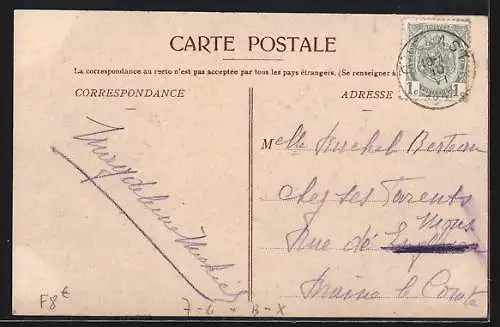 CARTE POSTALE
La correspondance au recto n'est pas acceptée par tous les pays étrangers. (Se renseigner à
CORRESPONDANCE
ADRESSE
1c 1
Melle Michel Berteau
chez ses Parents
Rue de
Mons
Braine le Comte
F8€
7-4-B-X